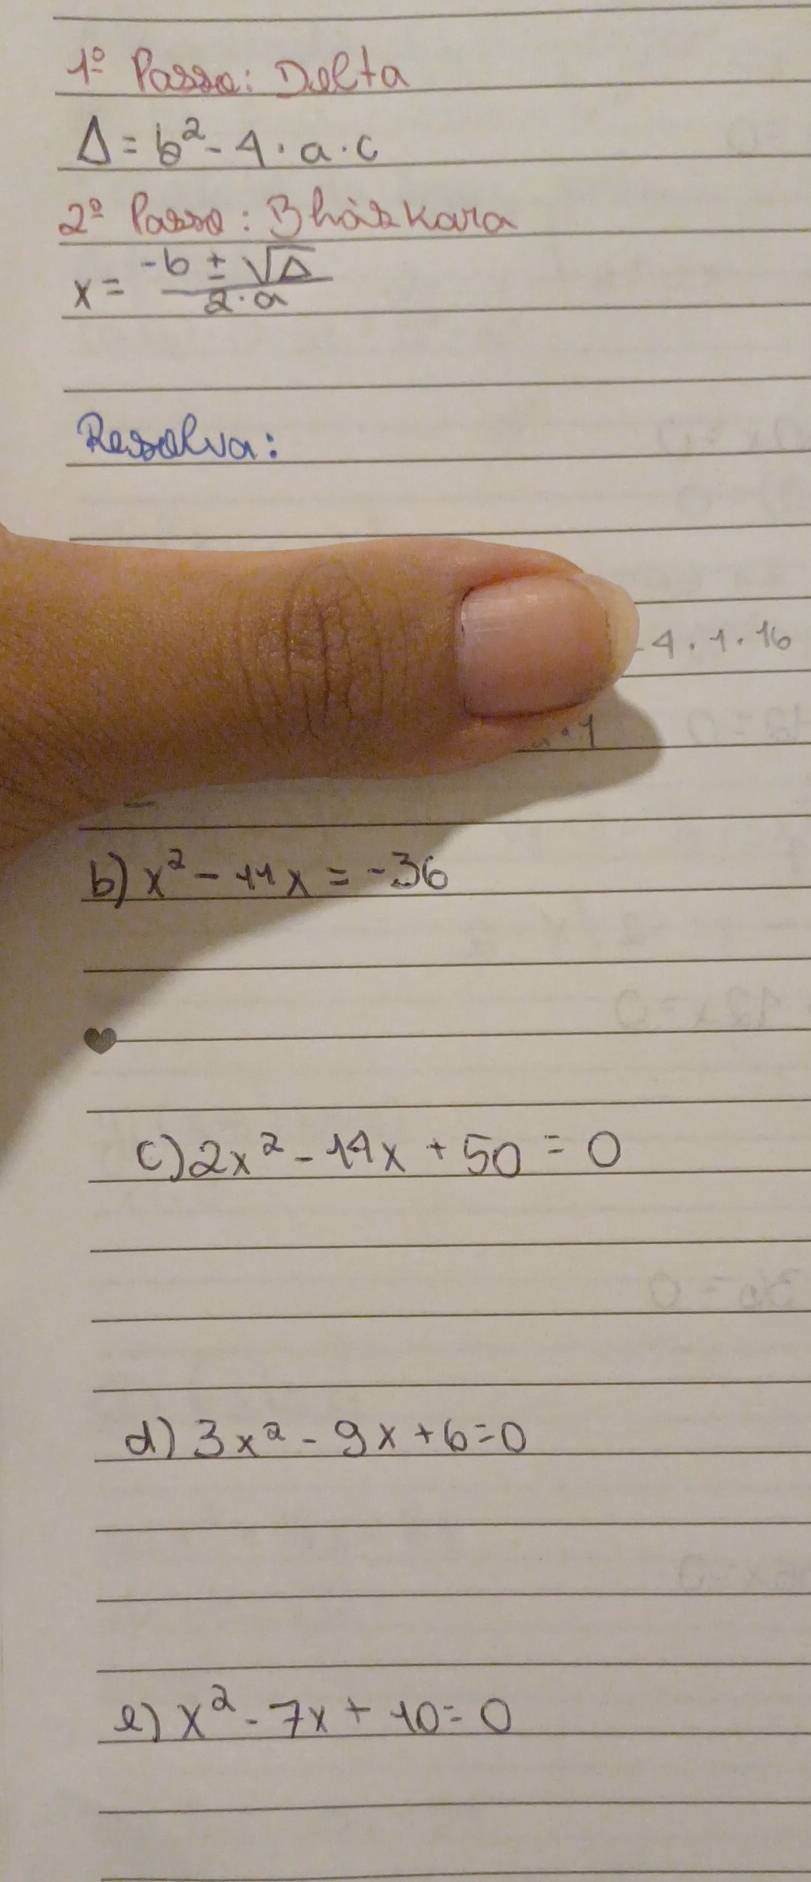 1º Passo: Delta
Δ = b² - 4 · a · c
2º Passo: Bháskara
x = -b ± √Δ / 2 · a
Resolva:
- 4 · 1 · 16
· 1
b) x² - 11x = -36
c) 2x² - 14x + 50 = 0
d) 3x² - 9x + 6 = 0
e) x² - 7x + 10 = 0